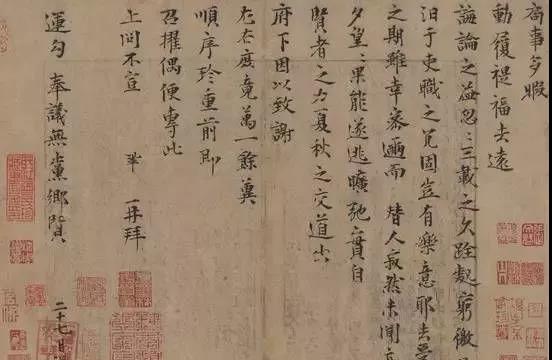 局事多暇
動履禔福去遠
誨論之益忽忽三載之久跧處窮徼
汩于吏職之冗固豈有樂意耶去受
之期雖幸密邇而替人寂然未聞亦
夕望望果能遂逃曠弛實自
賢者之力夏秋之交道出
府下因以致謝
左右庶竟萬一餘冀
順序珍重前即
召擢偶便專此
上問不宣 鞏再拜
運勾奉議無黨鄉賢 二十七日